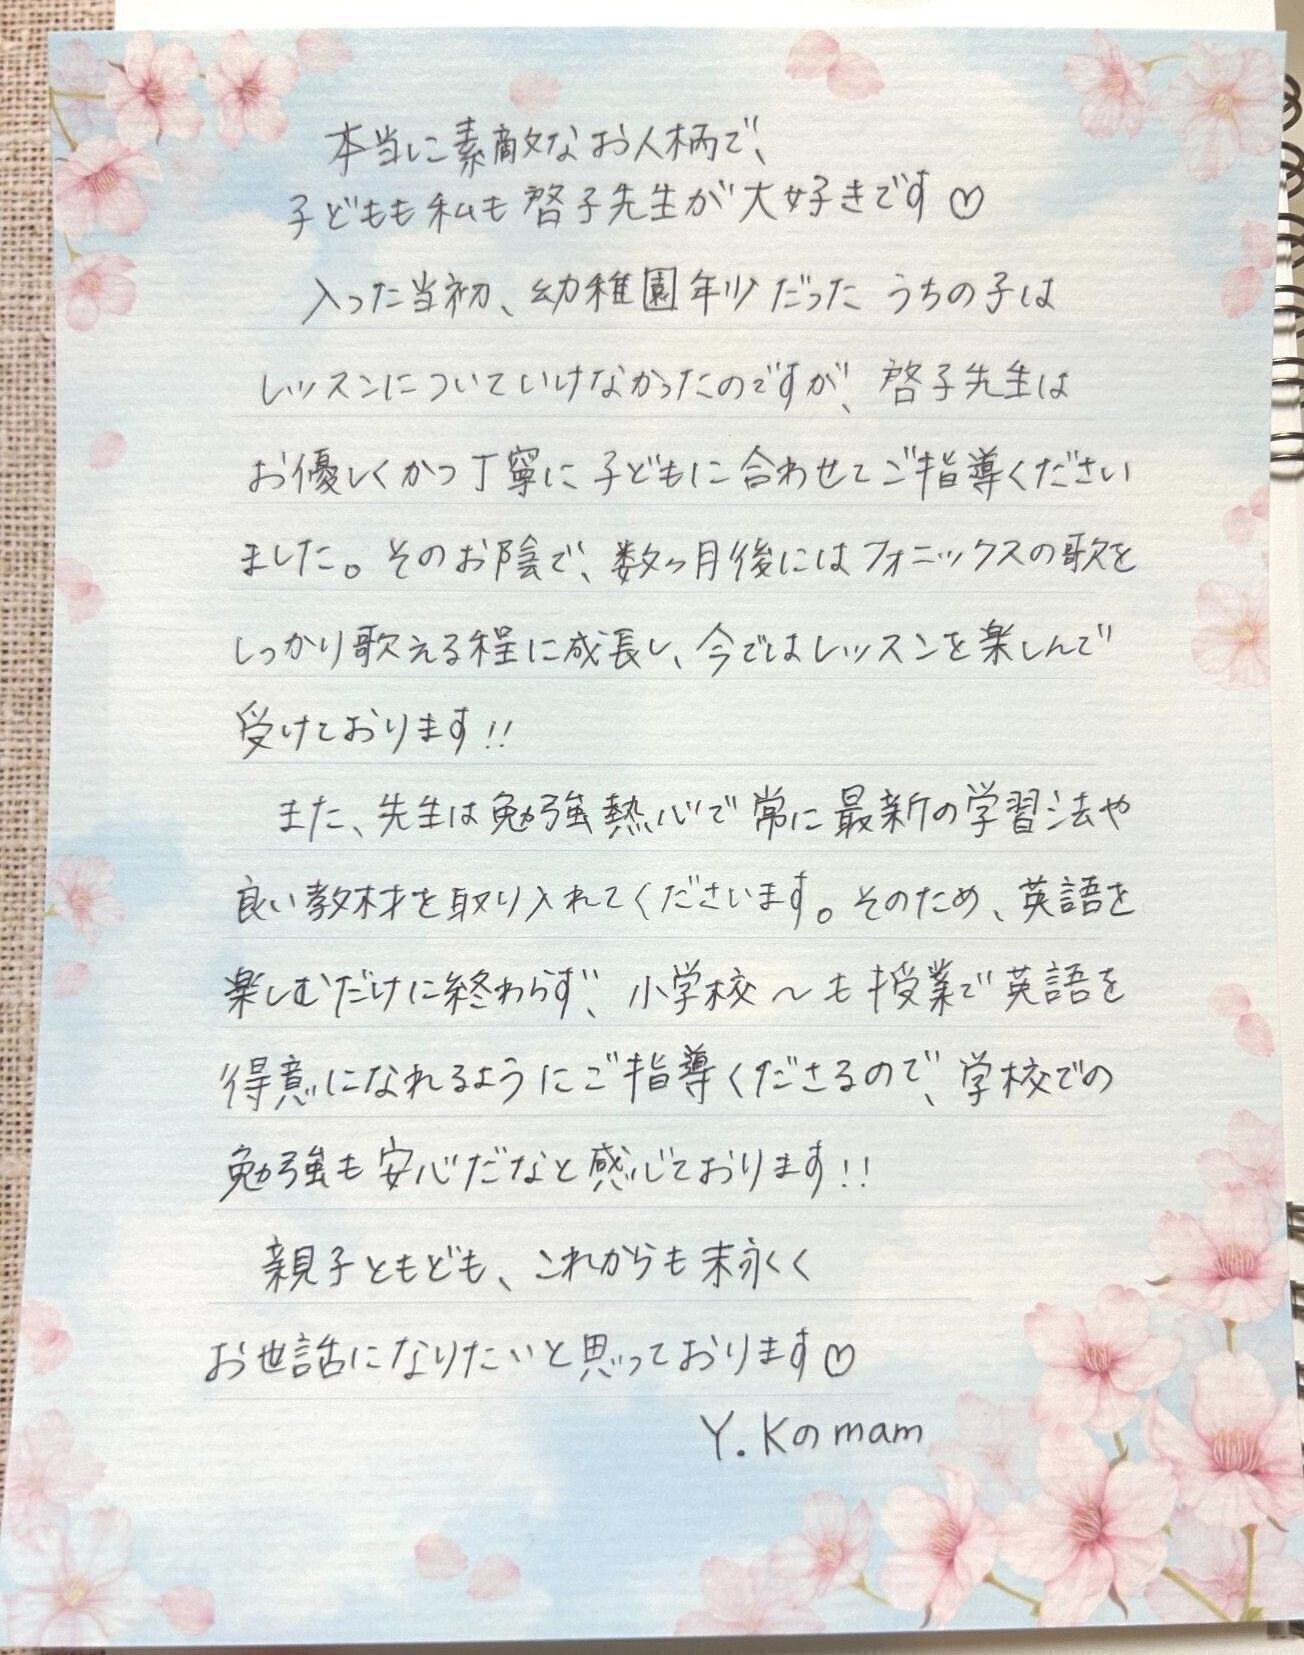 本当に素敵なお人柄で、
子どもも私も啓子先生が大好きです♡
入った当初、幼稚園年少だったうちの子は
レッスンについていけなかったのですが、啓子先生は
お優しくかつ丁寧に子どもに合わせてご指導ください
ました。そのお陰で、数ヶ月後にはフォニックスの歌を
しっかり歌える程に成長し、今ではレッスンを楽しんで
受けております!!
また、先生は勉強熱心で常に最新の学習法や
良い教材を取り入れてくださいます。そのため、英語を
楽しむだけに終わらず、小学校〜も授業で英語を
得意になれるようにご指導くださるので、学校での
勉強も安心だなと感じております!!
親子ともども、これからも末永く
お世話になりたいと思っております♡
Y.Kのmam